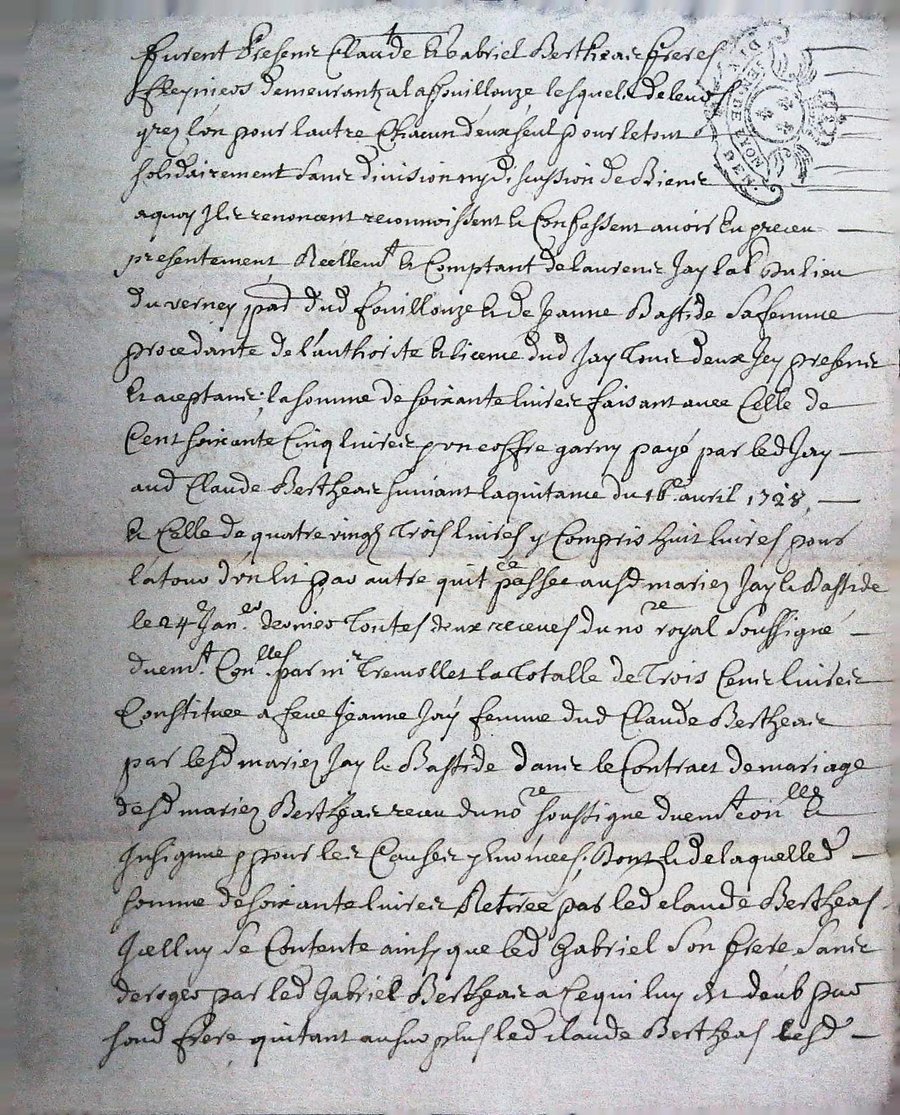 furent presens Claude & Gabriel Bertheas freres
demeurants a la fouillouze lesquels de leurs
grez l'un pour l'autre chacun d'eux seul pour le tout
solidairement sans division ny discussion de Biens
a quoy Ils renoncent reconnoissent & Confessent avoir Eu & receu
presentement Réellemt & Comptant de laurens Jay lab du lieu
du verney parr dud fouillouze & de Jeanne Bastide sa femme
procedante de l'authorité & licence dud Jay Tous deux Icy presens
& aceptans, la somme de soixante livres faisant avec Celle de
Cent soixante Cinq livres & un coffre garny payé par led Jay
aud Claude Bertheas suivant la quitance du 16e avril 1728
& Celle de quatre vingt Trois livres y Compris huit livres pour
la tour d'un lit par autre quitce passée ausd mariez Jay & Bastide
le 24e Janer dernier Toutes deux receues du nore royal soussigné
duemt Conlles par mr Tremollet la Totalle de Trois Cens livres
Constituee a feue Jeanne Jay femme dud Claude Bertheas
par lesd mariez Jay & Bastide dans le Contract de mariage
desd mariez Bertheas receu du nore soussigne duemt conlle &
Insignue & pour les Causes y enoncees, Dont & de laquelle d
somme de soixante livres Retirée par led claude Bertheas
Icelluy se Contente ainsy que led Gabriel son frere sans
deroger par led Gabriel Bertheas a Ce qui luy est deub par
sond frere quitant au surplus led claude Bertheas lesd
GEN DE